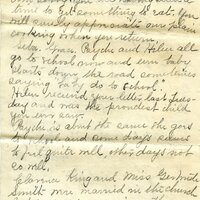 time to get something to eat. You
will surely appreciate our plain
cooking when you return.
Grace, Psyche and Helen all
go to school now and even baby
starts down the road sometimes
saying "baby do to School."
Helen received your letter last Tues-
day and was the proudest child
you ever saw.
Psyche is about the same she goes
to school and some days she
feels quite well, other days not
so well,
Clarence King and Miss Gertrude
Smith were married in the church